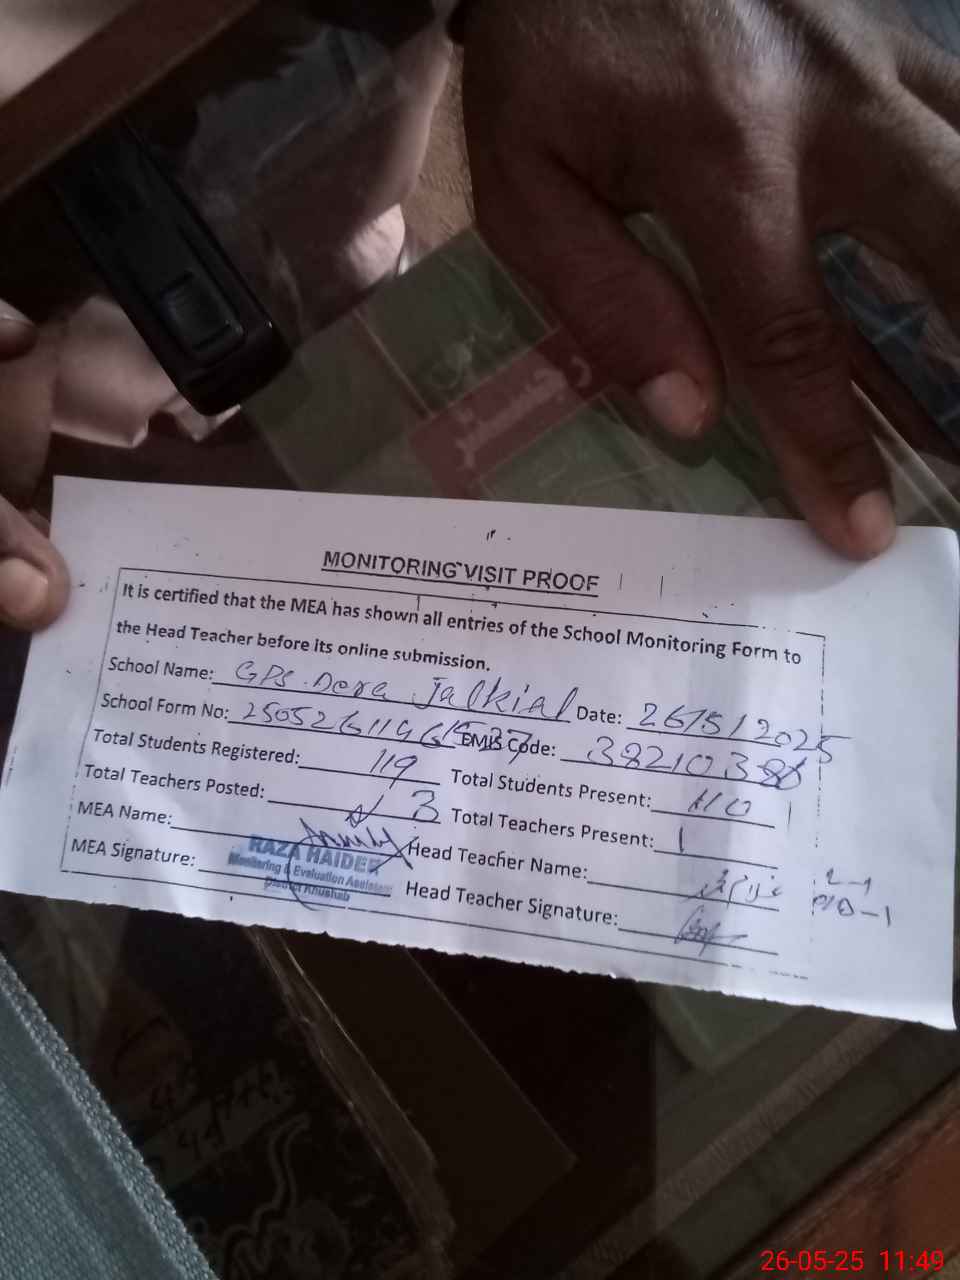 رجسٹر
MONITORING VISIT PROOF
It is certified that the MEA has shown all entries of the School Monitoring Form to
the Head Teacher before its online submission.
School Name: GPS. Dera Jalkial Date: 26/5/2025
School Form No: EMIS Code: 
Total Students Registered: 119 Total Students Present: 110
Total Teachers Posted: 3 Total Teachers Present: 1
MEA Name: Head Teacher Name:
MEA Signature: Head Teacher Signature:
RAZA HAIDER
Monitoring & Evaluation Assistant
District Khushab
L-1
O/D-1
26-05-25 11:49